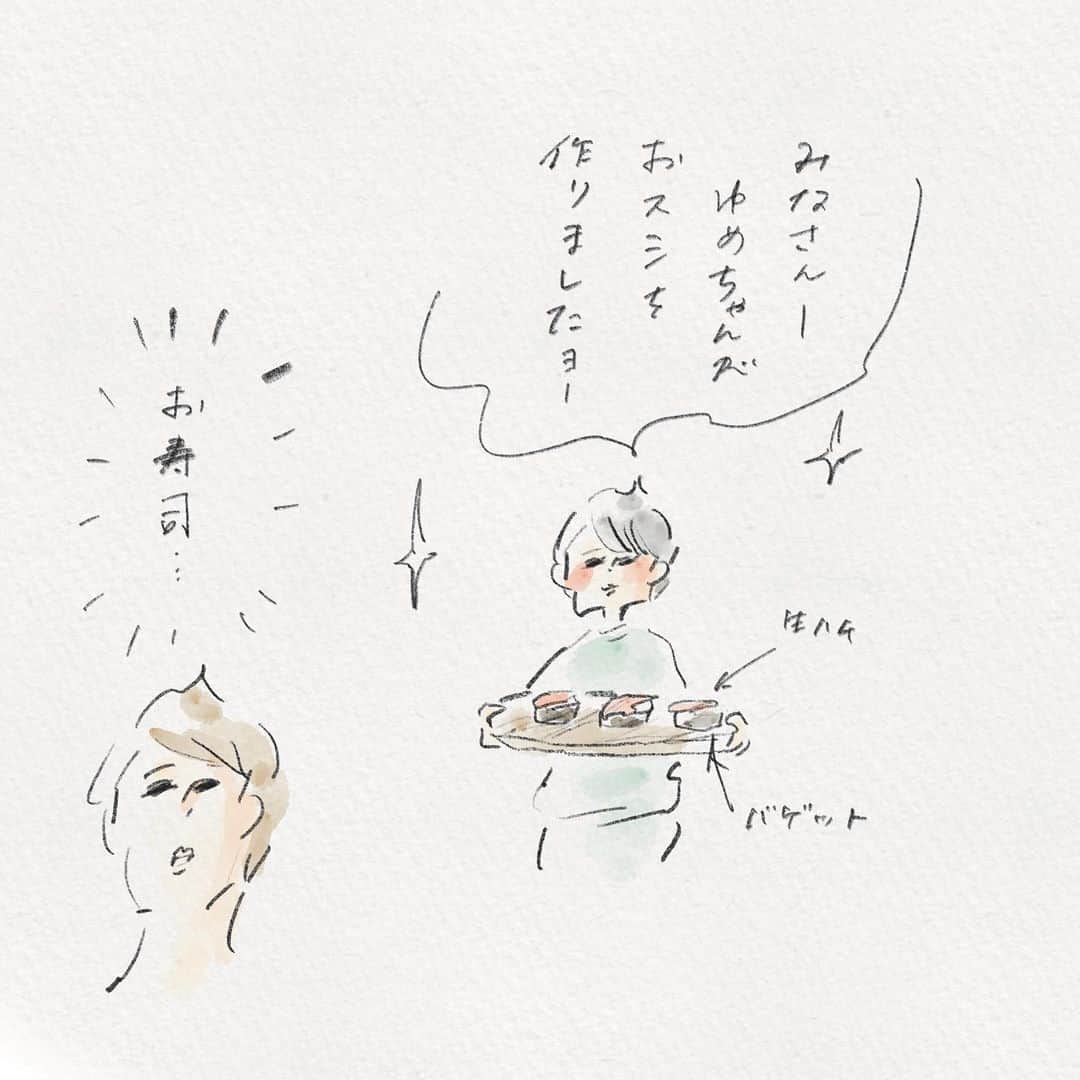 みなさんー
ゆめちゃんが
おスシを
作りましたョー
お寿司…
生ハム
バゲット